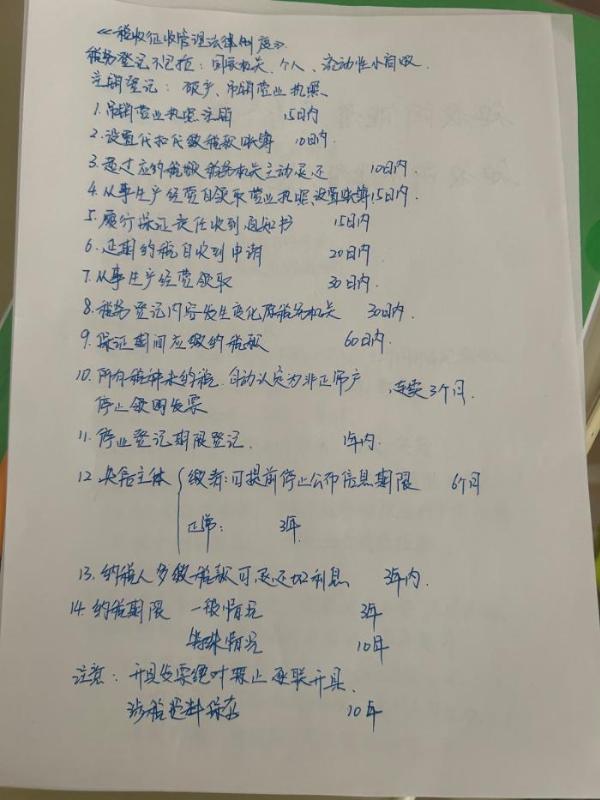 《税收征收管理法律制度》
税务登记不包括：国家机关、个人、流动性小商贩.
注销登记：破产、吊销营业执照
1.吊销营业执照注销 15日内
2.设置代扣代缴税款账簿 10日内
3.超过应纳税额税务机关主动退还 10日内
4.从事生产经营自领取营业执照,设置账簿15日内
5.履行保证责任收到通知书 15日内
6.延期纳税自收到申请 20日内
7.从事生产经营领取 30日内
8.税务登记内容发生变化原税务机关 30日内
9.保证期间应缴纳税款 60日内
10.所有税种未纳税,自动认定为非正常户 连续3个月.
停止领用发票
11.停业登记期限登记. 1年内.
12 失信主体 缴者:可提前停止公布信息期限 6个月
正常： 3年
13.纳税人多缴税款可退还加利息 3年内.
14.纳税期限 一般情况 3年
特殊情况 10年
注意：开具发票绝对禁止每联开具.
涉税资料保存 10年